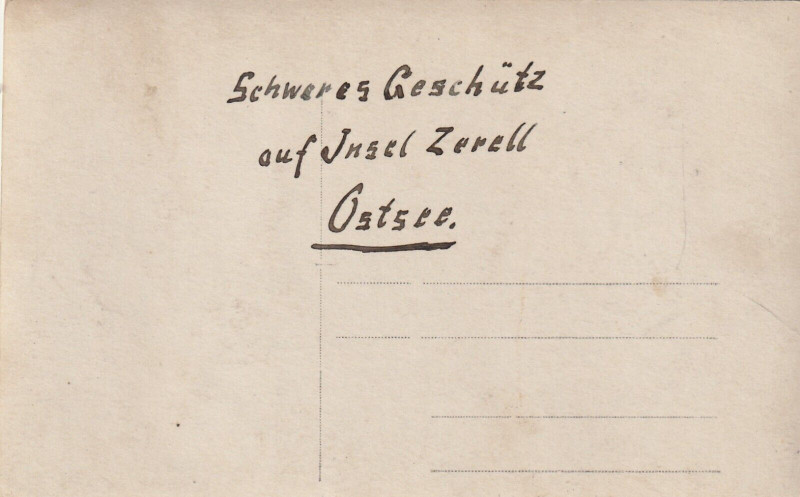 Schweres Geschütz
auf Insel Zerell
Ostsee.